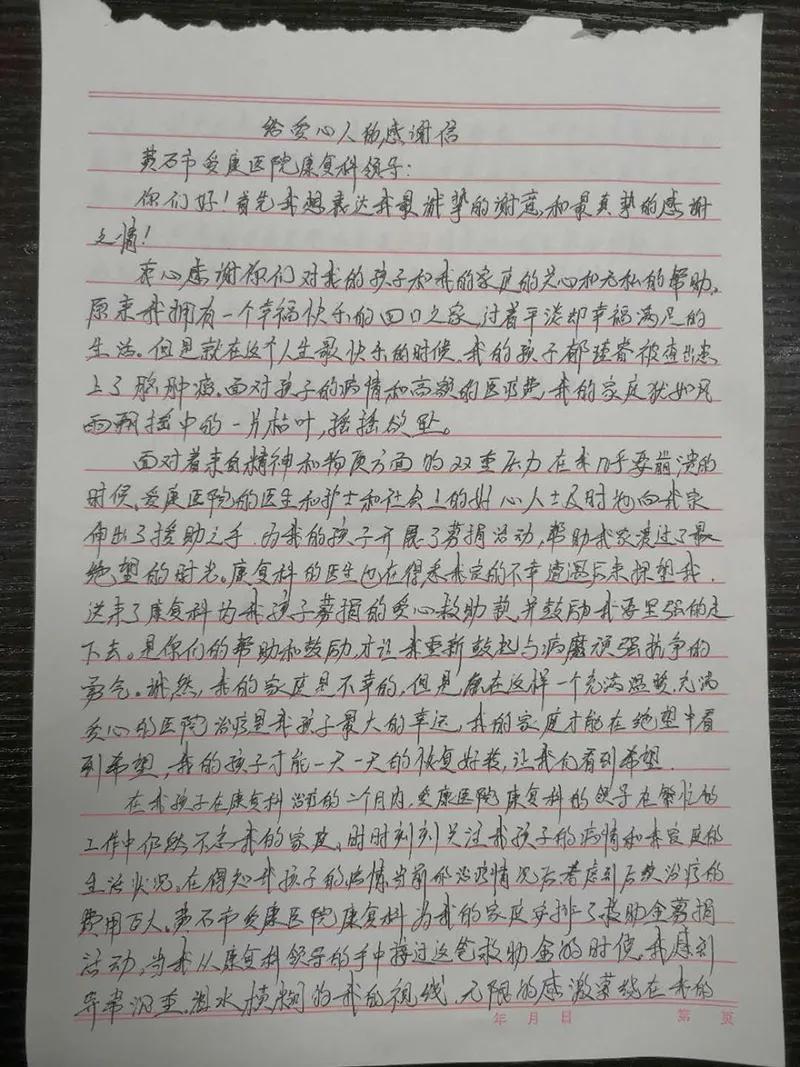 给爱心人的感谢信
黄石市爱康医院康复科领导：
你们好！首先我想表达我最诚挚的谢意和最真挚的感谢
之情！
衷心感谢你们对我的孩子和我的家庭的关心和无私的帮助。
原来我拥有一个幸福快乐的四口之家，过着平淡却幸福满足的
生活。但是就在这个人生最快乐的时候，我的孩子被查出患
上了脑肿瘤。面对孩子的病情和高额的医疗费，我的家庭犹如风
雨飘摇中的一片枯叶，摇摇欲坠。
面对着来自精神和物质方面的双重压力在我几乎要崩溃的
时候，爱康医院的医生和护士和社会上的好心人士及时地向我家
伸出了援助之手，为我的孩子开展了募捐活动，帮助我家渡过了最
绝望的时光。康复科的医生也在得悉我家的不幸遭遇后来探望我，
送来了康复科为我孩子募捐的爱心救助款，并鼓励我要坚强的走
下去。是你们的帮助和鼓励，才让我重新鼓起与病魔顽强抗争的
勇气。诚然，我的家庭是不幸的，但是能在这样一个充满温暖，充满
爱心的医院治疗是我孩子最大的幸运，我的家庭才能在绝望中看
到希望，我的孩子才能一天一天的恢复好转，让我们看到希望．
在我孩子在康复科治疗的二个月内，爱康医院康复科的领导在繁忙的
工作中仍然不忘我的家庭，时时刻刻关注我孩子的病情和我家庭的
生活状况。在得知我孩子的病情当前的治疗情况后考虑到后续治疗的
费用巨大。黄石市爱康医院康复科为我的家庭安排了救助金募捐
活动，当我从康复科领导的手中接过这笔救助金的时候，我感到
异常沉重，泪水模糊的我的视线，无限的感激萦绕在我的
年 月 日 第 页